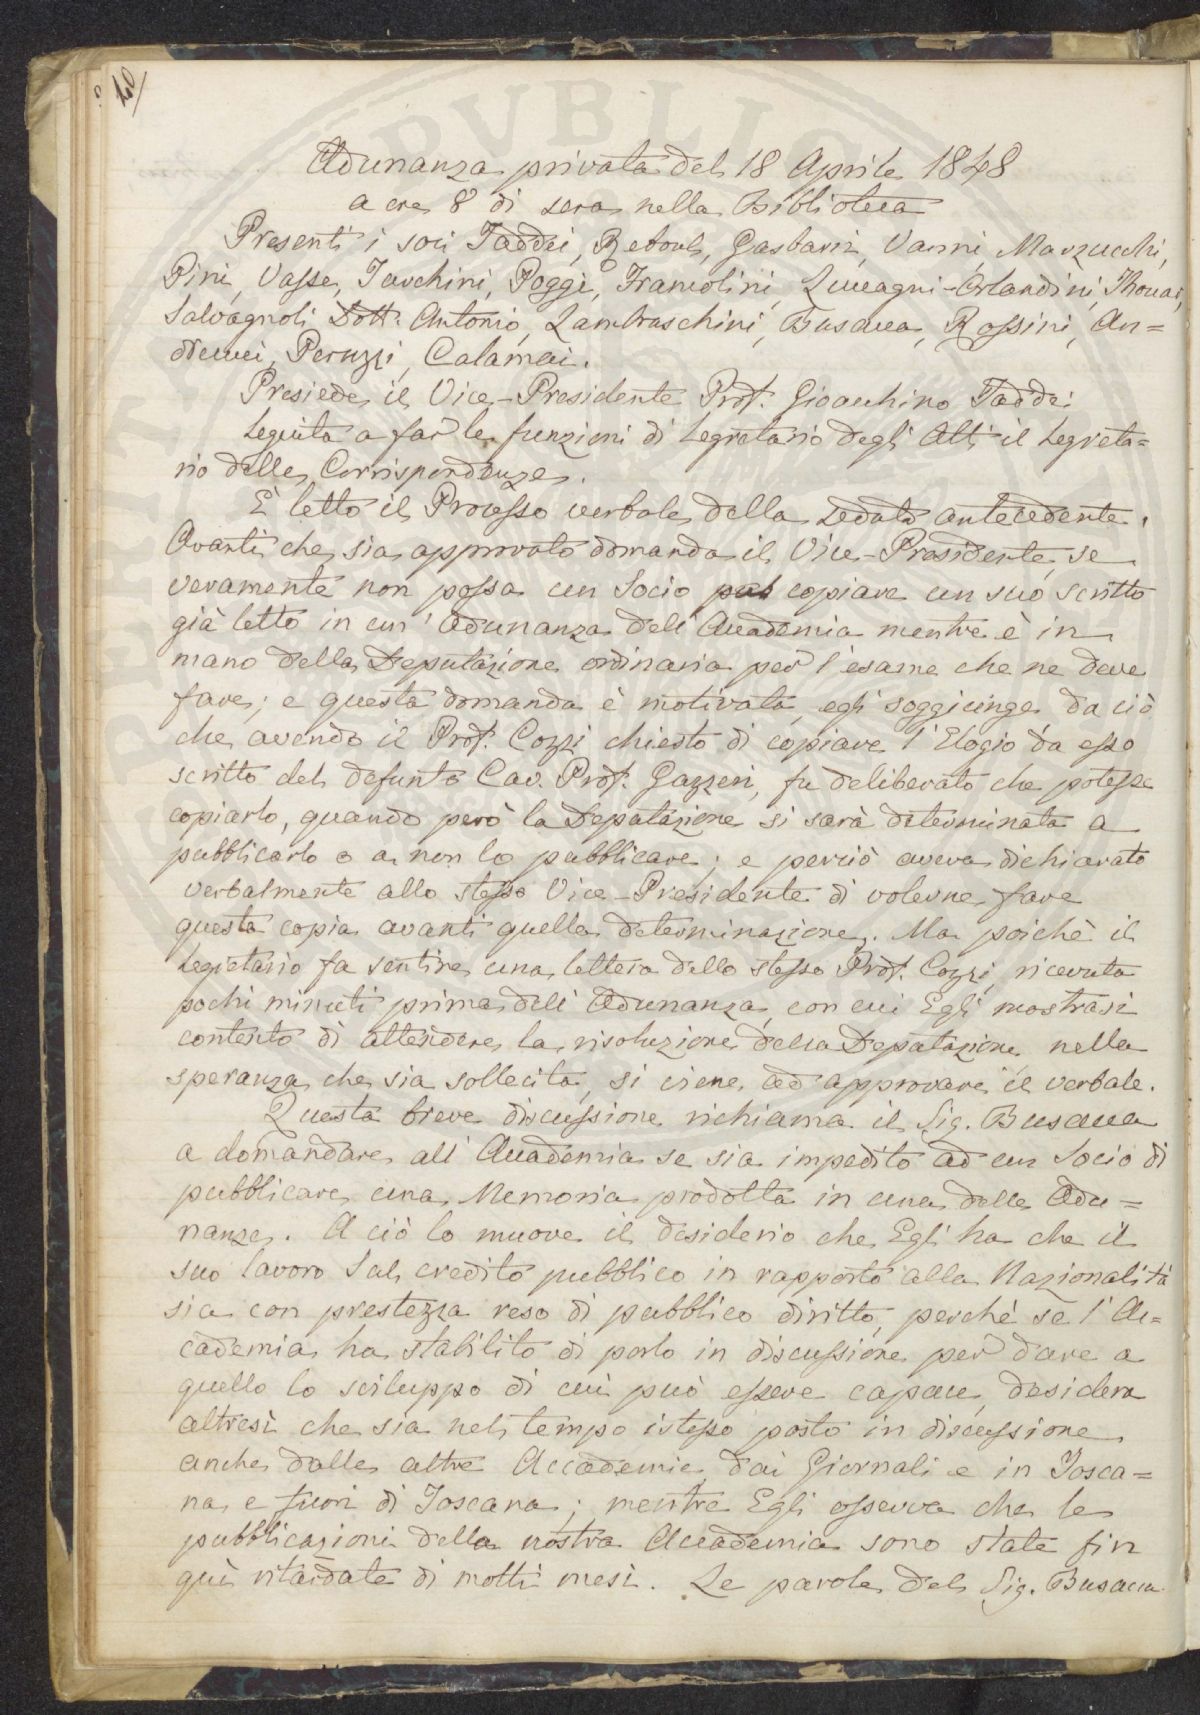 40
Adunanza privata del 18 Aprile 1848
a ore 8 di sera nella Biblioteca
Presenti i soci Taddei, Reboul, Gasbarri, Vanni, Marzucchi,
Pini, Vasse, Tarchini, Poggi, Francolini, Zuccagni-Orlandini, Thouar,
Salvagnoli Dott. Antonio, Lambruschini, Busacca, Rossini, An=
dreucci, Peruzzi, Calamai.
Presiede il Vice-Presidente Prof. Gioacchino Taddei
Seguita a far le funzioni di Segretario degli Atti il Segreta=
rio delle Corrispondenze.
È letto il Processo verbale della seduta antecedente.
Avanti che sia approvato domanda il Vice-Presidente, se
veramente non possa un Socio copiare un suo scritto
già letto in un' Adunanza dell' Accademia mentre è in
mano della Deputazione ordinaria per l'esame che ne deve
fare; e questa domanda è motivata, egli soggiunge da ciò
che avendo il Prof. Cozzi chiesto di copiare l'Elogio da esso
scritto del defunto Cav. Prof. Gazzeri, fu deliberato che potesse
copiarlo, quando però la Deputazione si sarà determinata a
pubblicarlo o a non lo pubblicare; e perciò aveva dichiarato
verbalmente allo stesso Vice-Presidente di volerne fare
questa copia avanti quella determinazione. Ma poichè il
Segretario fa sentire una lettera dello stesso Prof. Cozzi, ricevuta
pochi minuti prima dell' Adunanza, con cui Egli mostrasi
contento di attendere la risoluzione della Deputazione nella
speranza che sia sollecita, si viene ad approvare il verbale.
Questa breve discussione richiama il Sig. Busacca
a domandare all' Accademia se sia impedito ad un Socio di
pubblicare una Memoria prodotta in una delle Adu=
nanze. A ciò lo muove il desiderio che Egli ha che il
suo lavoro Sul credito pubblico in rapporto alla Nazionalità
sia con prestezza reso di pubblico diritto, perchè se l'Ac=
cademia ha stabilito di porlo in discussione per dare a
quello lo sviluppo di cui può essere capace, desidera
altresì che sia nel tempo istesso posto in discussione
anche dalle altre Accademie, dai Giornali e in Tosca=
na e fuori di Toscana; mentre Egli osserva che le
pubblicazioni della nostra Accademia sono state fin
quì ritardate di molti mesi. Le parole del Sig. Busacca